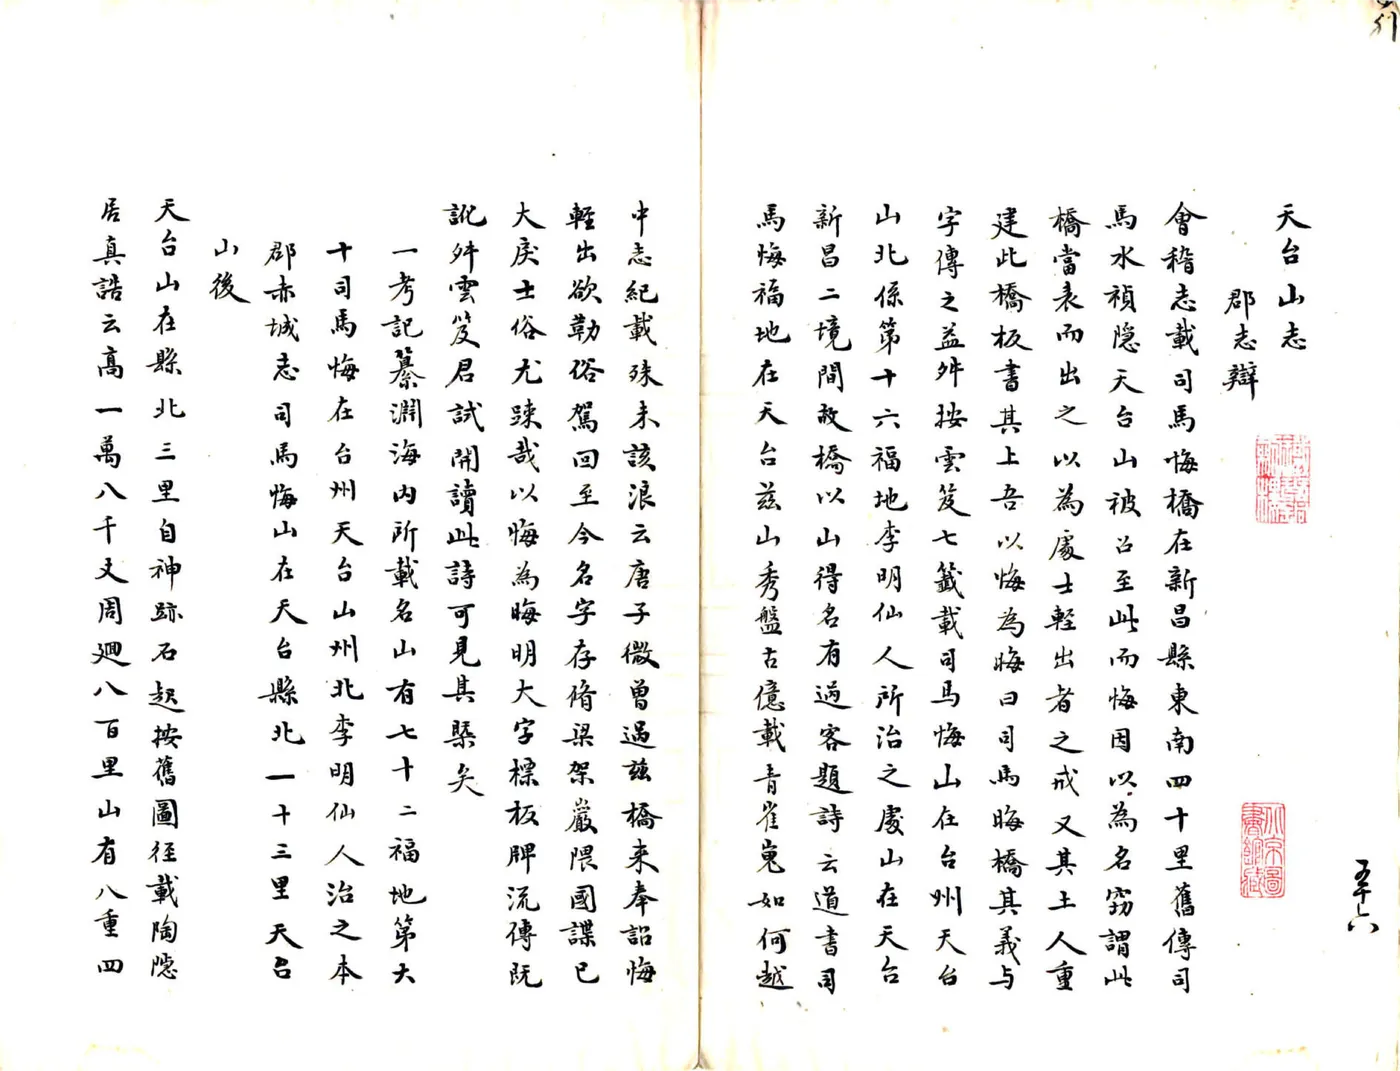 天台山志
郡志辯
會稽志載司馬悔橋在新昌縣東南四十里舊傳司
馬水禎隐天台山被召至此而悔因以為名窃謂此
橋當表而出之以為處士輕出者之戒又其土人重
建此橋板書其上吾以悔為晦曰司馬晦橋其義与
字傳之益舛按雲笈七籤載司马悔山在台州天台
山北係第十六福地李明仙人所治之處山在天台
新昌二境間故橋以山得名有過客題詩云道書司
馬悔福地在天台兹山秀盤古億載青崔嵬如何越
中志紀載殊未該浪云唐子微曾過兹橋来奉詔悔
輕出欲勒俗駕回至今名字存脩梁架巖隈國諜已
大戾士俗尤踈哉以悔為晦明大字標板牌流傳既
訛舛雲笈君試開讀此詩可見其槩矣
一考記纂淵海内所載名山有七十二福地第六
十司馬悔在台州天台山州北李明仙人治之本
郡赤城志司馬悔山在天台縣北一十三里天台
山後
天台山在縣北三里自神跡石起按舊圖径載陶隐
居真誥云高一萬八千丈周廻八百里山有八重四
五十六